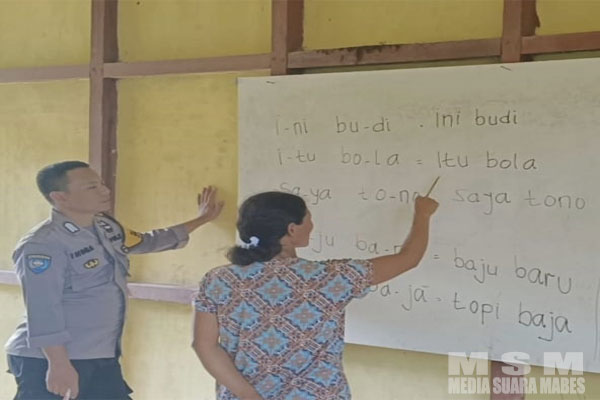 i-ni bu-di . ini budi
i-tu bo-la = Itu bola
sa-ya to-no saya tono
ju ba- = baju baru
-jā = topi baja
MSM
MEDIA SUARA MABES